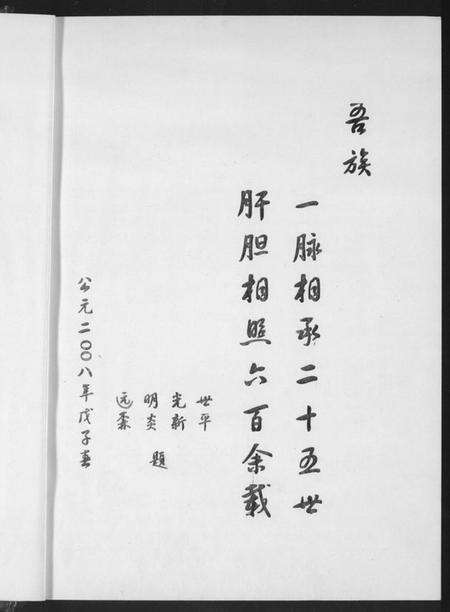 吾族
一脉相承二十五世
肝胆相照六百余载
世平
光新
明炎 题
远森
公元二00八年戊子春